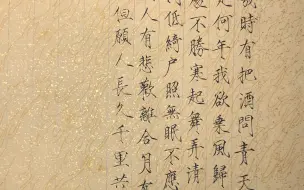 幾時有把酒問青天
是何年我欲乘風歸
處不勝寒起舞弄清
低綺戶照無眠不應
人有悲歡離合月有
但願人長久千里共